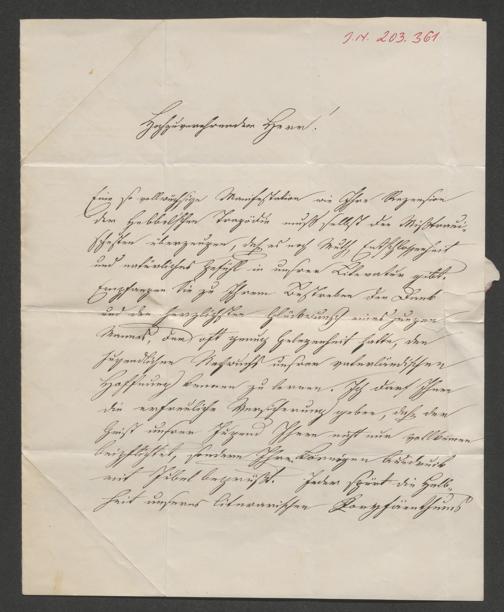 J.N. 203.361
Hochzuverehrender Herr!
Eine so vollwichtige Manifestation wie Ihre Rezension
der Hebbelschen Tragödie muß selbst den Mißtraui-
schesten überzeugen, daß es noch Muth, Entschlossenheit
und natürliches Gefühl in unsrer Literatur gibt.
Empfangen Sie zu Ihrem Bestreben den Dank
und den herzlichsten Glückwunsch eines jungen
Mannes, der oft genug Gelegenheit hatte, den
jugendlichen Nachwuchs unsrer vaterländischen
Hoffnung kennen zu lernen. Ich darf Ihnen
die erfreuliche Versicherung geben, daß der
Geist unsrer Jugend Ihnen nicht nur vollkommen
beipflichtet, sondern Ihren
mit Jubel begrüßt. Jeder spürt die Hohl-
heit unseres literarischen